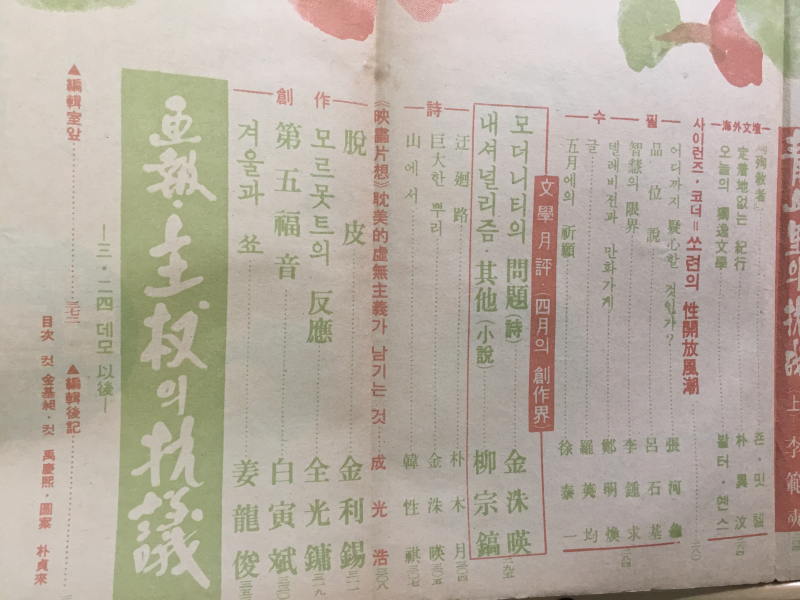 靑山里의 抗戰 上 李範奭
—海外文壇—
『殉敎者』 존·밋첼
定着地없는 紀行 朴異汶
오늘의 獨逸文學 발터·옌스
사이런즈·코더=쏘련의 性開放風潮
—수필—
어디까지 疑心한 것인가? 張河
品位說 呂石基
智慧의 限界 李鍾求
텔레비젼과 만화가게 鄭明煥
글 羅英均
五月에의 祈願 徐泰一
文學月評·(四月의 創作界)
모더니티의 問題(詩) 金洙暎
내셔널리즘·其他(小說) 柳宗鎬
—詩—
迂廻路 朴木月
巨大한 뿌리 金洙暎
山에서 韓性祺
《映畵片想》耽美的虛無主義가 남기는 것 成光浩
—創作—
脫皮 金利錫
모르못트의 反應 全光鏞
第五福音 白寅斌
겨울과 쑈 姜龍俊
画報·主权의 抗議
—三·二四 데모 以後—
▲編輯室앞 三七二
▲編輯後記
目次 컷 金基昶·컷 禹慶熙·圖案 朴貞來